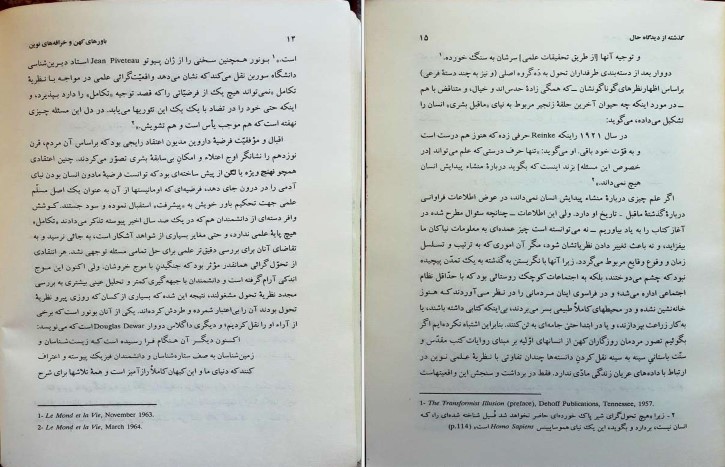 ۱۴ باورهای کهن و خرافه‌های نوین
است.»۱ بونور همچنین سخنی را از ژان پیوتو Jean Piveteau استاد دیرین‌شناسی
دانشگاه سوربن نقل می‌کند که نشان می‌دهد واقعیّت‌گرائی علمی در مواجهه با نظریهٔ
تکامل «نمی‌تواند هیچ یک از فرضیّاتی را که قصد توجیه «تکامل» را دارد بپذیرد، و
اینکه حتی خود را در تضاد با یک یک این تئوریها می‌یابد. در دل این مسئله چیزی
نهفته است که هم موجب یأس است و هم تشویش.»۲
اقبال و موفّقیّت فرضیهٔ داروین مدیون اعتقاد رایجی بود که براساس آن مردم، قرن
نوزدهم را نشانگر اوج اعتلاء و امکانِ بی‌سابقهٔ بشری تصوّر می‌کردند. چنین اعتقادی
همچو نهنج ویژه یا لگن از پیش ساخته‌ای بود که توانست فرضیهٔ مادون انسان بودن نیای
آدمی را در درون جای دهد، فرضیه‌ای که اومانیستها از آن به عنوان یک اصل مسلّم
علمی جهت تحکیم باور خویش به «پیشرفت»، استقبال نموده و سود جستند. کوشش
وافر دسته‌ای از دانشمندان هم که در یک صد سال اخیر پیوسته تذکر می‌دادند «تکامل»
هیچ پایهٔ علمی ندارد، و حتی مغایر بسیاری از شواهد آشکار است، به جائی نرسید و به
تقاضای آنان برای بررسی دقیق‌تر علمی برای حل تمامی مسئله توجهی نشد. هر انتقادی
از تحوّل‌گرائی همانقدر مؤثر بود که جنگیدن با موج خروشان. ولی اکنون این موج
اندکی آرام گرفته است و دانشمندان با جبهه‌گیری کمتر و تحلیل عینی بیشتری به بررسی
مجدد نظریهٔ تحول مشغولند، نتیجه این شده که بسیاری از کسان که روزی پیرو نظریهٔ
تحول بودند آن را بی‌اعتبار شمرده و طردش کرده‌اند. یکی از آنان بونور است که برخی
از آراء او را نقل کردیم؛ و دیگری داگلاس دووار Douglas Dewar است که می‌نویسد:
اکنون دیگر آن هنگام فرا رسیده است که زیست‌شناسان و
زمین‌شناسان به صف ستاره‌شناسان و دانشمندان فیزیک پیوسته و اعتراف
کنند که دنیای ما و این کیهان کاملاً رازآمیز است و همهٔ تلاشها برای شرح
1- Le Mond et la Vie, November 1963.
2- Le Mond et la Vie, March 1964.
گذشته از دیدگاه حال ۱۵
و توجیه آنها [از طریق تحقیقات علمی] سرشان به سنگ خورده.۱
دووار بعد از دسته‌بندی طرفداران تحول به ده گروه اصلی (و نیز به چند دستهٔ فرعی)
براساس اظهارنظرهای گوناگونشان ــ که همگی زادهٔ حدس‌اند و خیال، و متناقض با هم
ــ در مورد اینکه چه حیوان آخرین حلقهٔ زنجیر مربوط به نیای «ماقبل بشری» انسان را
تشکیل می‌داده، می‌گوید:
در سال ۱۹۲۱ راینکه Reinke حرفی زده که هنوز هم درست است
و به قوّت خود باقی. او می‌گوید: «تنها حرف درستی که علم می‌تواند [در
خصوص این مسئله] بزند اینست که بگوید دربارهٔ منشاء پیدایش انسان
هیچ نمی‌داند.»۲
اگر علم چیزی دربارهٔ منشاء پیدایش انسان نمی‌داند، در عوض اطلاعات فراوانی
دربارهٔ گذشتهٔ ماقبل - تاریخ او دارد. ولی این اطلاعات ــ چنانچه سئوال مطرح شده در
آغاز کتاب را به یاد بیاوریم ــ نه می‌توانسته است چیز عمده‌ای به معلومات نیاکان ما
بیفزاید، و نه باعث تغییر دادن نظریاتشان شود، مگر آن اموری که به ترتیب و تسلسل
زمان و وقوع وقایع مربوط می‌گردد. زیرا آنها با نگریستن به گذشته به یک تمدّن پیچیده
نبود که چشم می‌دوختند، بلکه به اجتماعات کوچک روستائی بود که با حدّاقل نظام
اجتماعی اداره می‌شد؛ و در فراسوی اینان مردمانی را در نظر می‌آوردند که هنوز
خانه‌نشین نشده و در محیطهای کاملاً طبیعی بسر می‌بردند، بی‌اینکه کتابی داشته باشند، یا
به کار زراعت بپردازند، و یا در ابتدا حتیٰ جامه‌ای به تن کنند. بنابراین اشتباه نکرده‌ایم اگر
بگوئیم تصور مردمان روزگاران کهن از انسانهای اوّلیه بر مبنای روایات کتب مقدّس و
سنّت باستانیِ سینه به سینه نقل کردنِ دانسته‌ها چندان تفاوتی با نظریهٔ علمی نوین در
ارتباط با داده‌های عریان زندگی مادّی ندارد. فقط در برداشت و سنجش این واقعیتهاست
1- The Transformist Illusion (preface), Dehoff Publications, Tennessee, 1957.
۲ - زیرا «هیچ تحوّل‌گرای شیر پاک خورده‌ای حاضر نخواهد شد فُسیل شناخته شده‌ای را، که
انسان نیست، بردارد و بگوید، این یک نیای هموساپینس Homo Sapiens است.» (p.114)